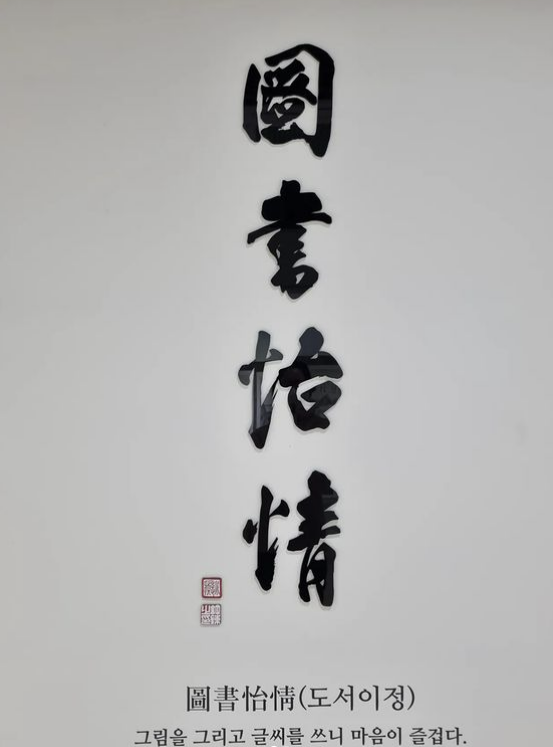 圖書怡情
圖書怡情(도서이정)
그림을 그리고 글씨를 쓰니 마음이 즐겁다.